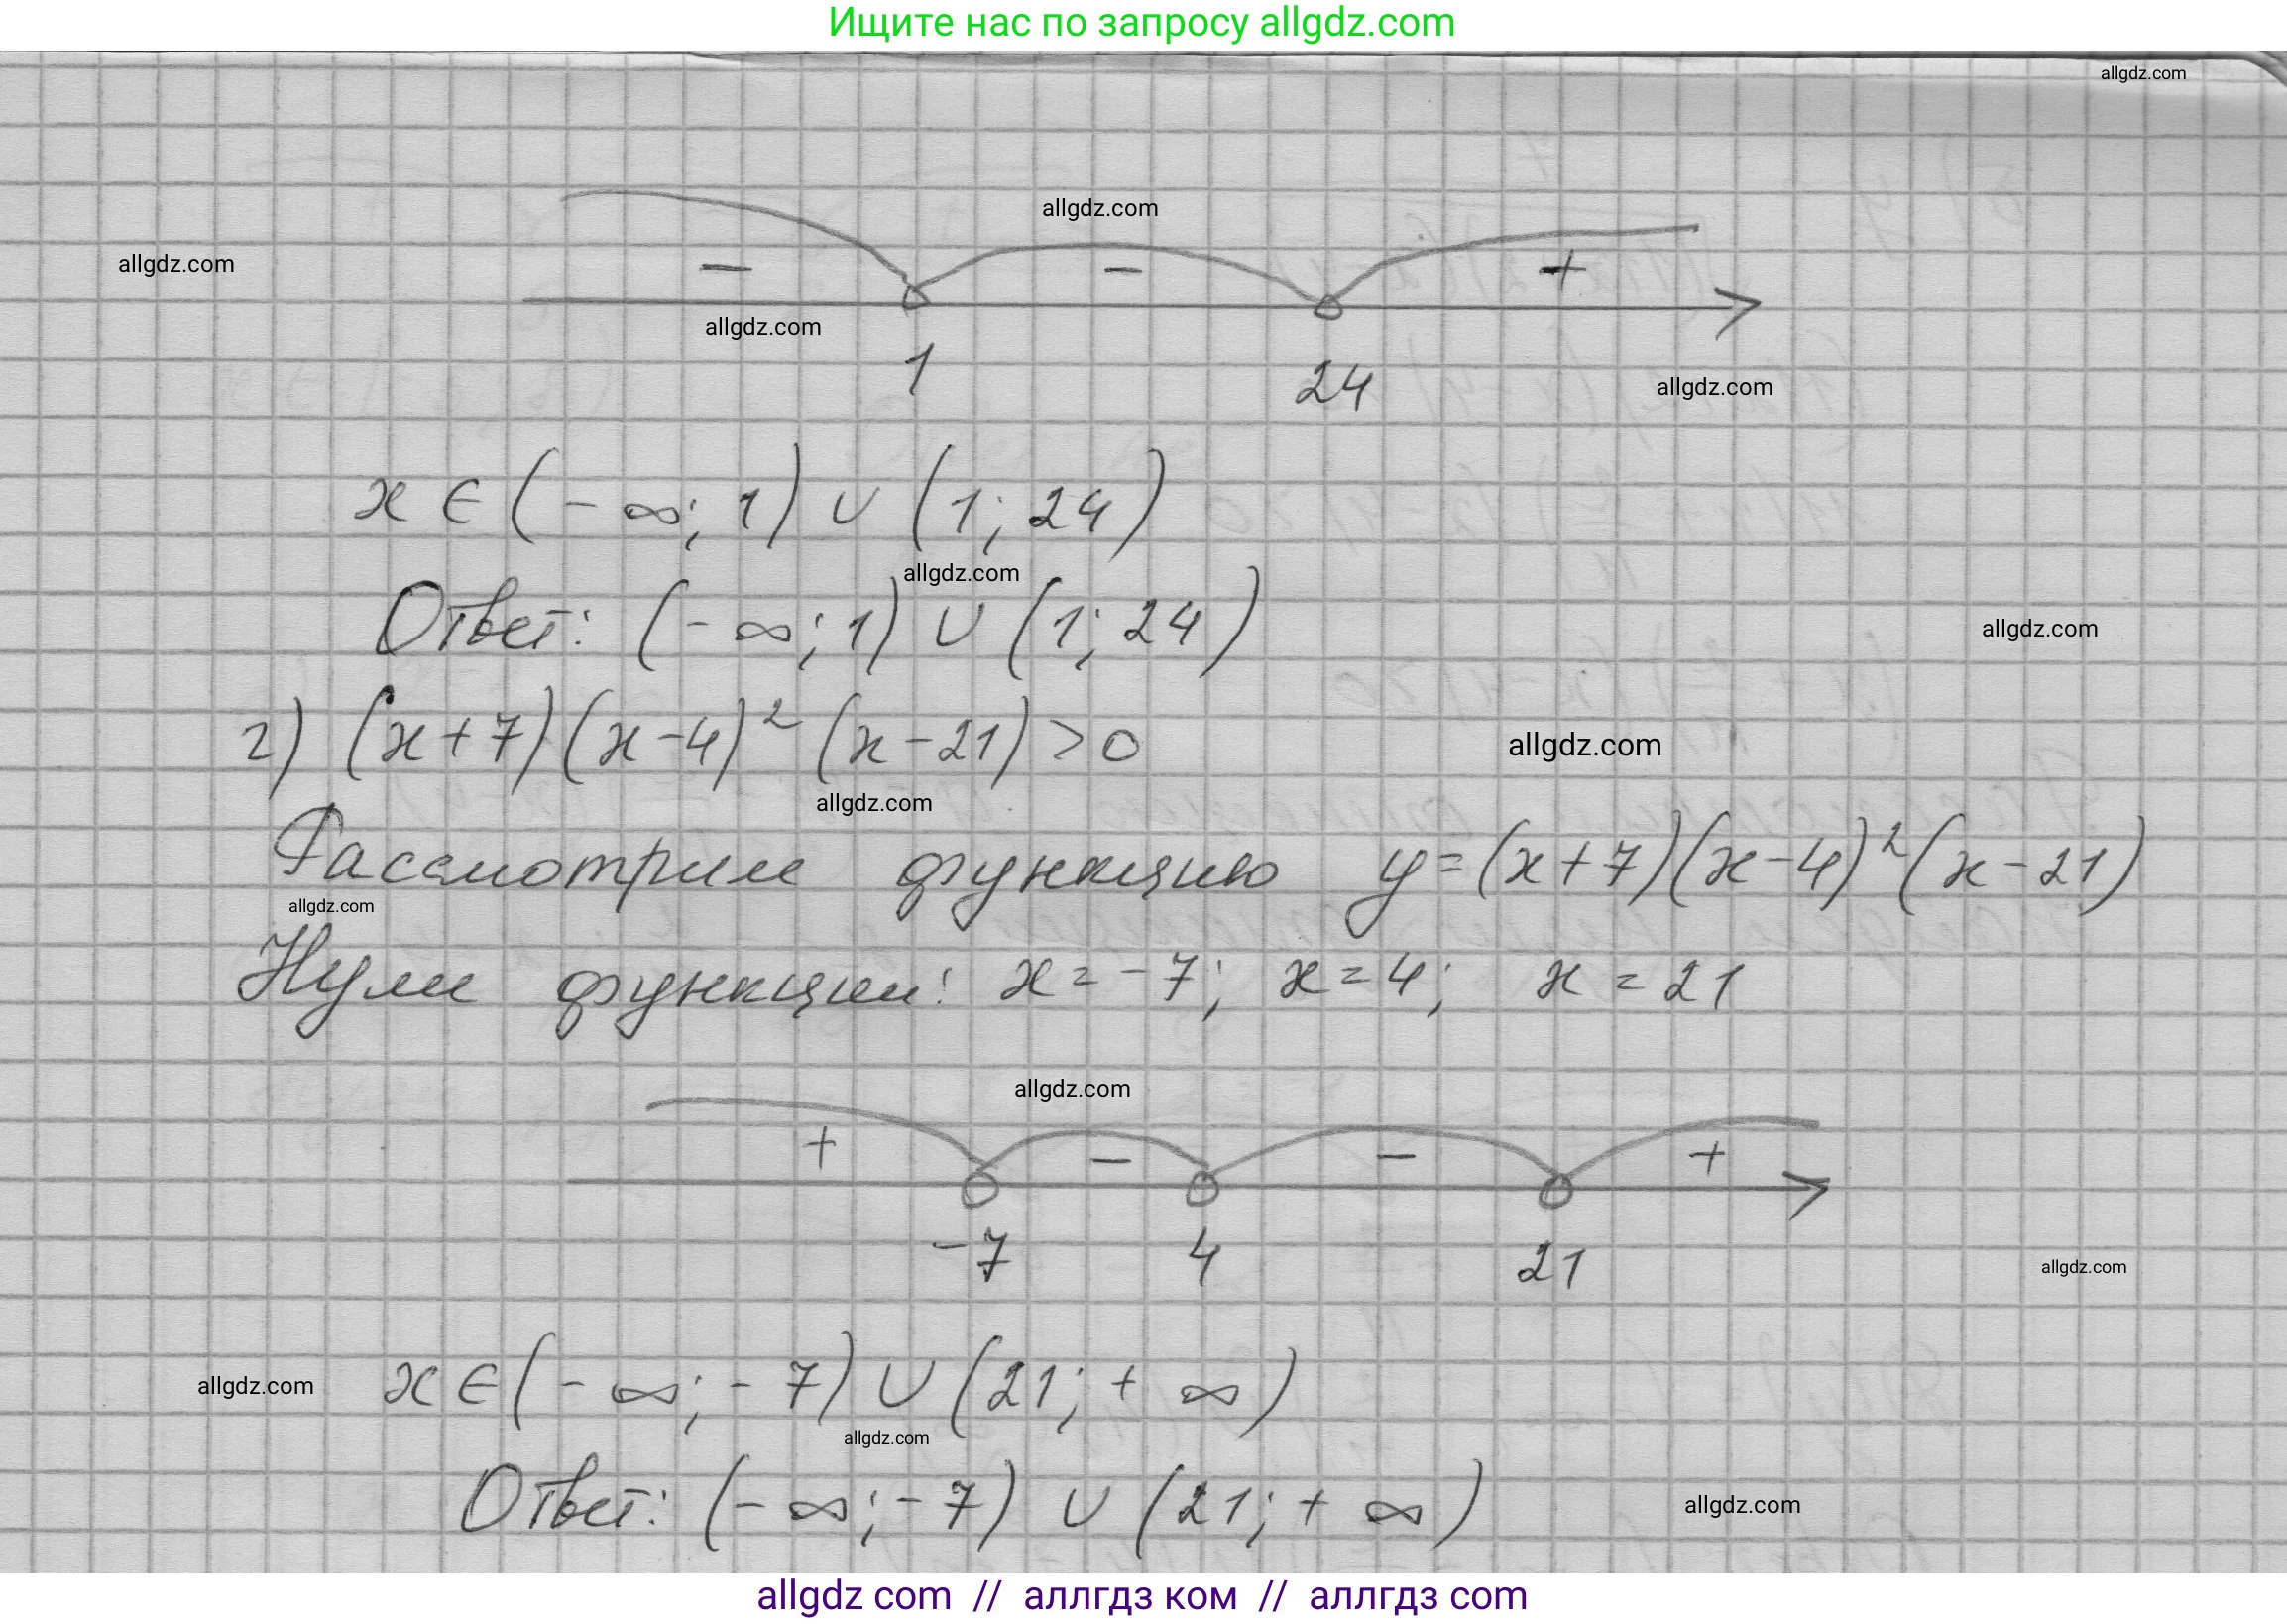 Ищите нас по запросу allgdz.com
allgdz.com
allgdz.com
allgdz.com
− − +
allgdz.com
1 24
allgdz.com
x ∈ (-∞; 1) ∪ (1; 24)
allgdz.com
Ответ: (-∞; 1) ∪ (1; 24)
allgdz.com
г) (x+7)(x-4)² (x-21) > 0
allgdz.com
allgdz.com
Рассмотрим функцию y = (x+7)(x-4)² (x-21)
allgdz.com
Нули функции: x = -7; x = 4; x = 21
allgdz.com
+ − − +
-7 4 21
allgdz.com
allgdz.com
x ∈ (-∞; -7) ∪ (21; +∞)
allgdz.com
Ответ: (-∞; -7) ∪ (21; +∞)
allgdz.com
allgdz com // аллгдз ком // аллгдз com